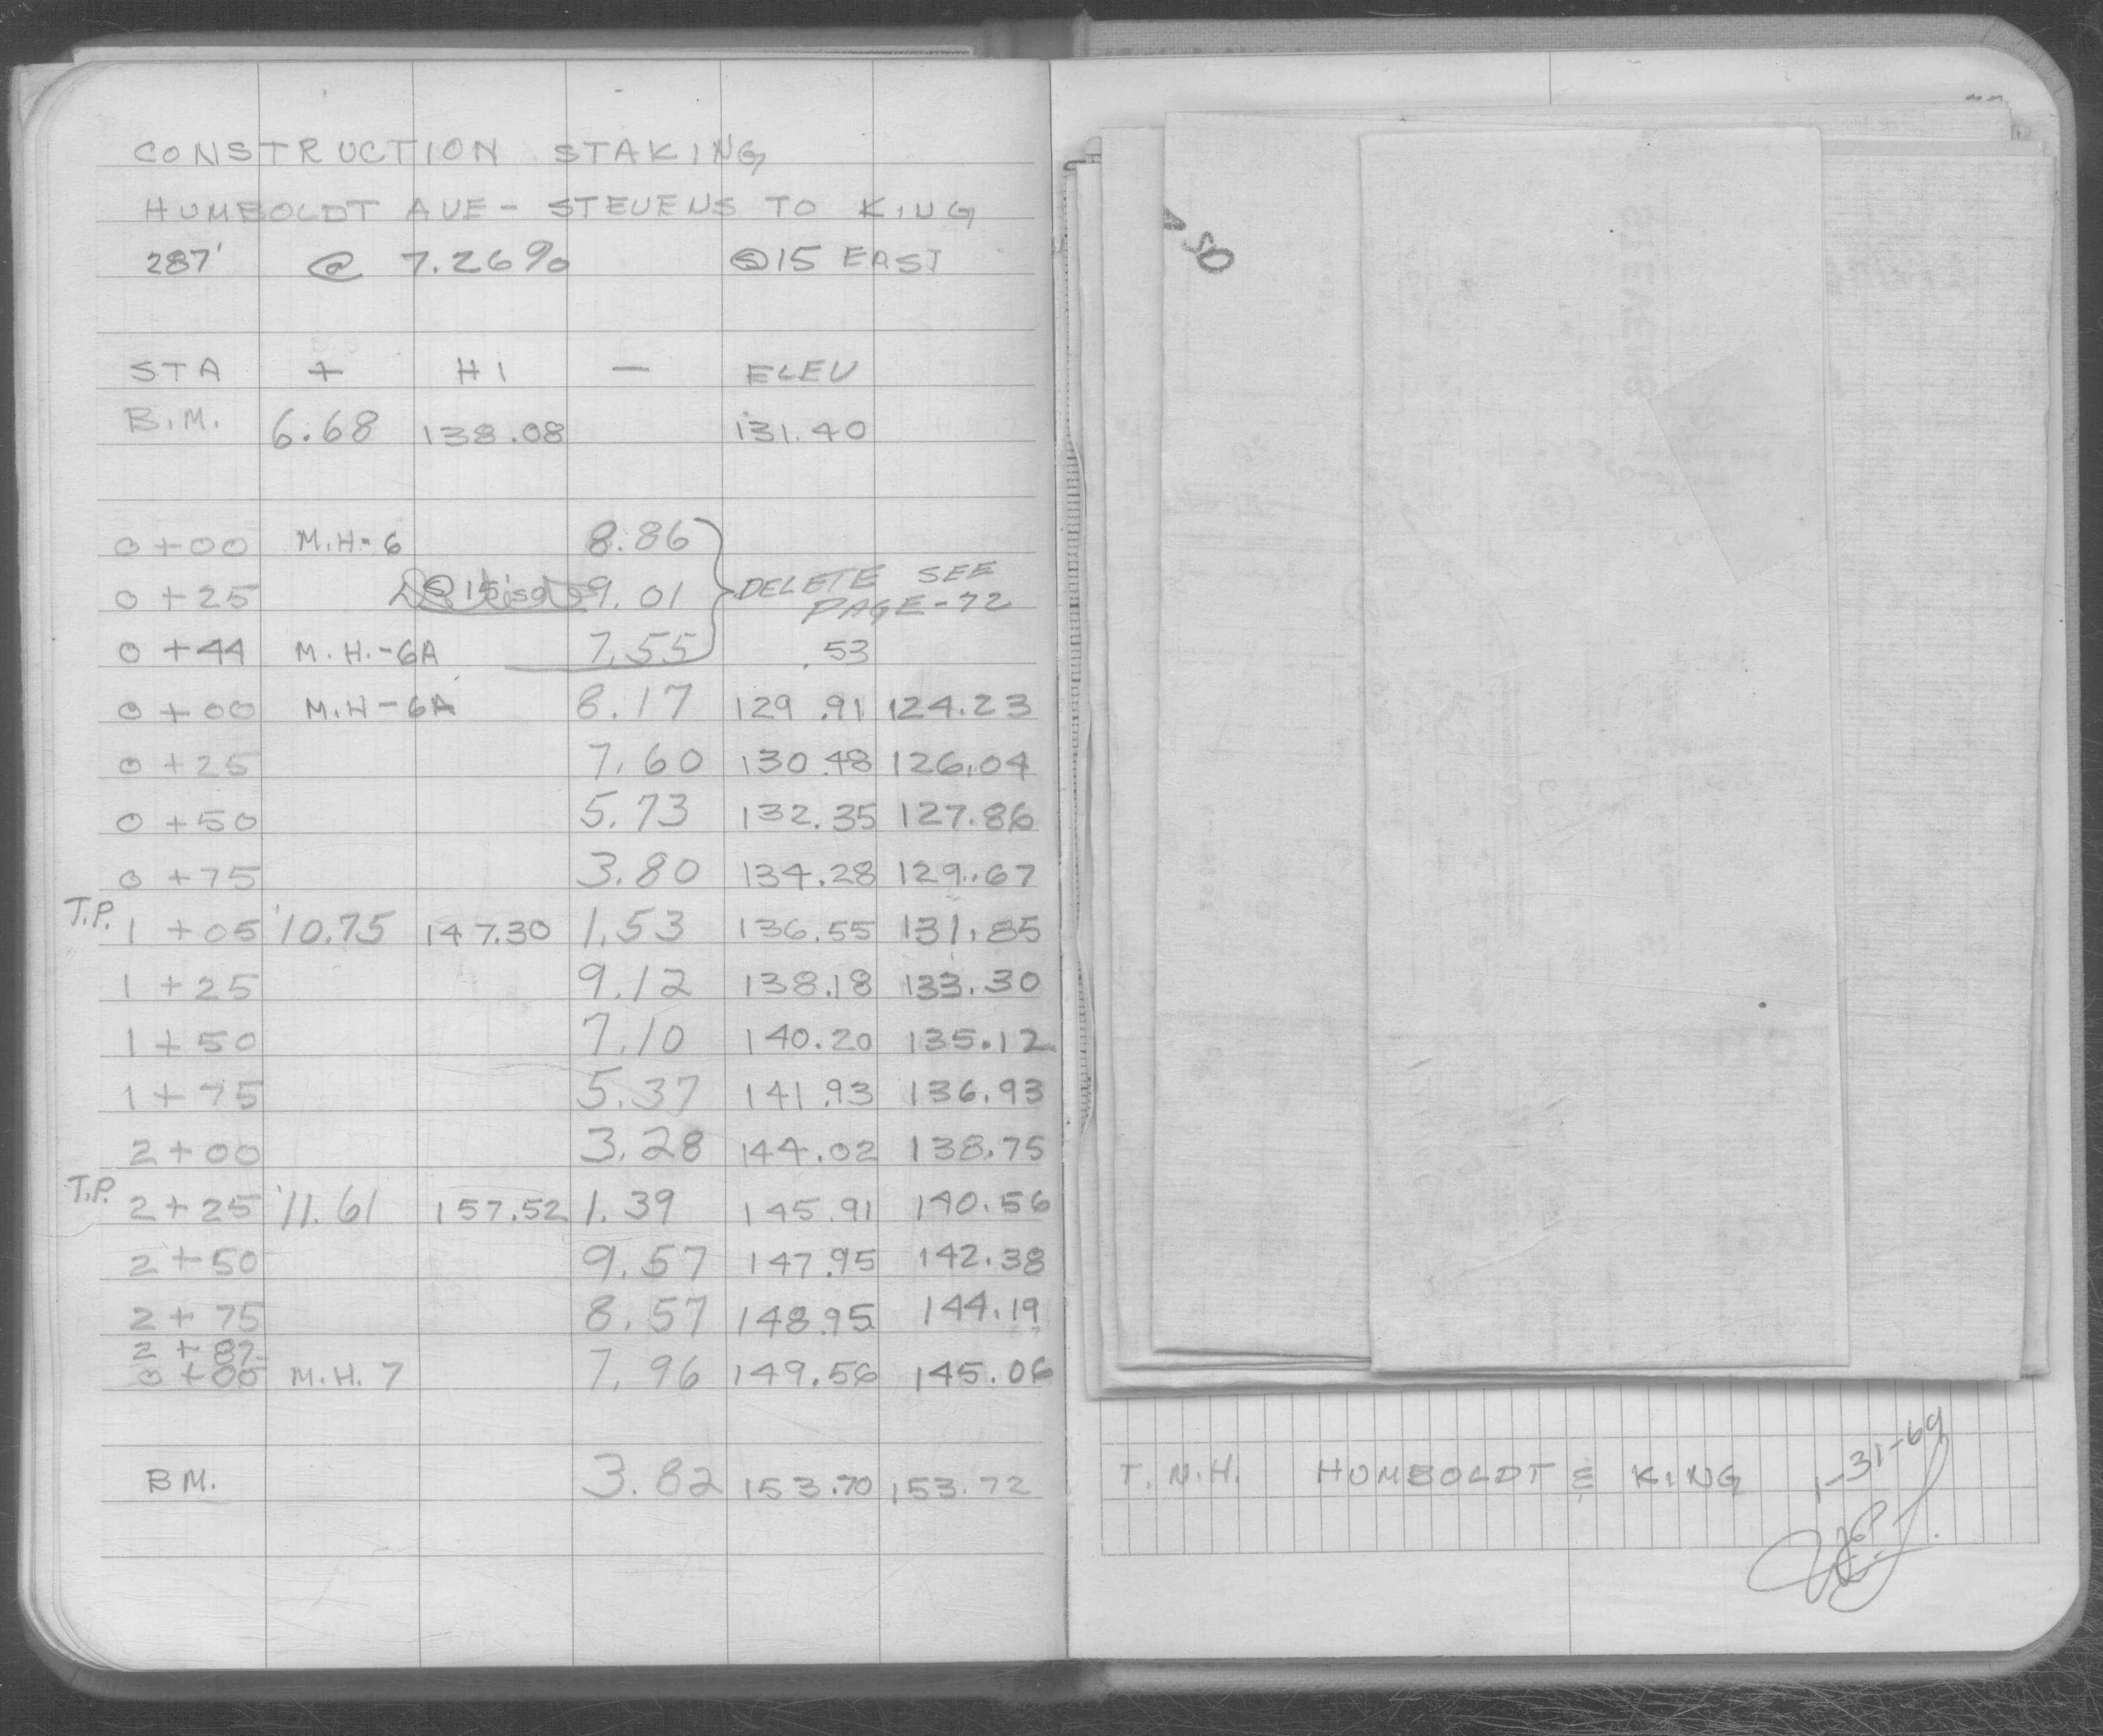 CONSTRUCTION STAKING
HUMBOLDT AVE - STEVENS TO KING
287' @ 7.26% @15 EAST
STA + HI - ELEV
B.M. 6.68 138.08 131.40
0+00 M.H-6 8.86
0+25 9.01 DELETE SEE PAGE-72
0+44 M.H.-6A 7.55 .53
0+00 M.H-6A 8.17 129.91 124.23
0+25 7.60 130.48 126.04
0+50 5.73 132.35 127.86
0+75 3.80 134.28 129.67
T.P. 1+05 10.75 147.30 1.53 136.55 131.85
1+25 9.12 138.18 133.30
1+50 7.10 140.20 135.12
1+75 5.37 141.93 136.93
2+00 3.28 144.02 138.75
T.P. 2+25 11.61 157.52 1.39 145.91 140.56
2+50 9.57 147.95 142.38
2+75 8.57 148.95 144.19
2+87
0+00 M.H.7 7.96 149.56 145.06
BM. 3.82 153.70 153.72
T.N.H. HUMBOLDT & KING 1-31-69